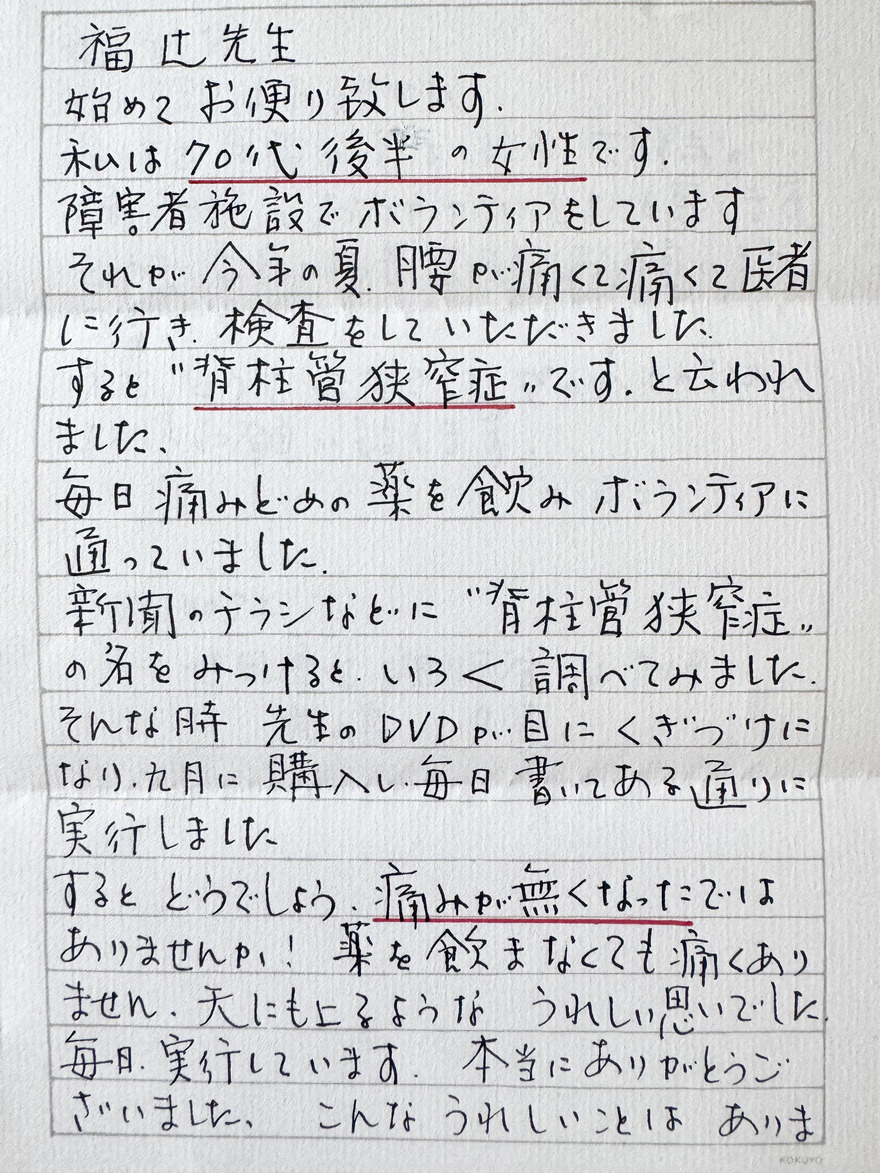 福辻先生
始めて お便り致します.
私は 70代 後半 の 女性です.
障害者施設で ボランティアをしています
それが 今年の夏. 腰が痛くて痛くて医者
に行き. 検査をしていただきました.
すると "脊柱管狭窄症" です. と云われ
ました.
毎日 痛みどめの 薬を飲み ボランティアに
通っていました.
新聞のチラシなどに "脊柱管狭窄症"
の名を みつけると. いろ〱 調べてみました.
そんな時 先生の DVDが 目に くぎづけに
なり. 九月に 購入し. 毎日 書いてある通りに
実行しました
すると どうでしょう. 痛みが無くなったでは
ありませんか! 薬を飲まなくても痛くあり
ません. 天にも上るような うれしい思いでした.
毎日. 実行しています. 本当にありがとうご
ざいました. こんな うれしいことは ありま
KOKUYO